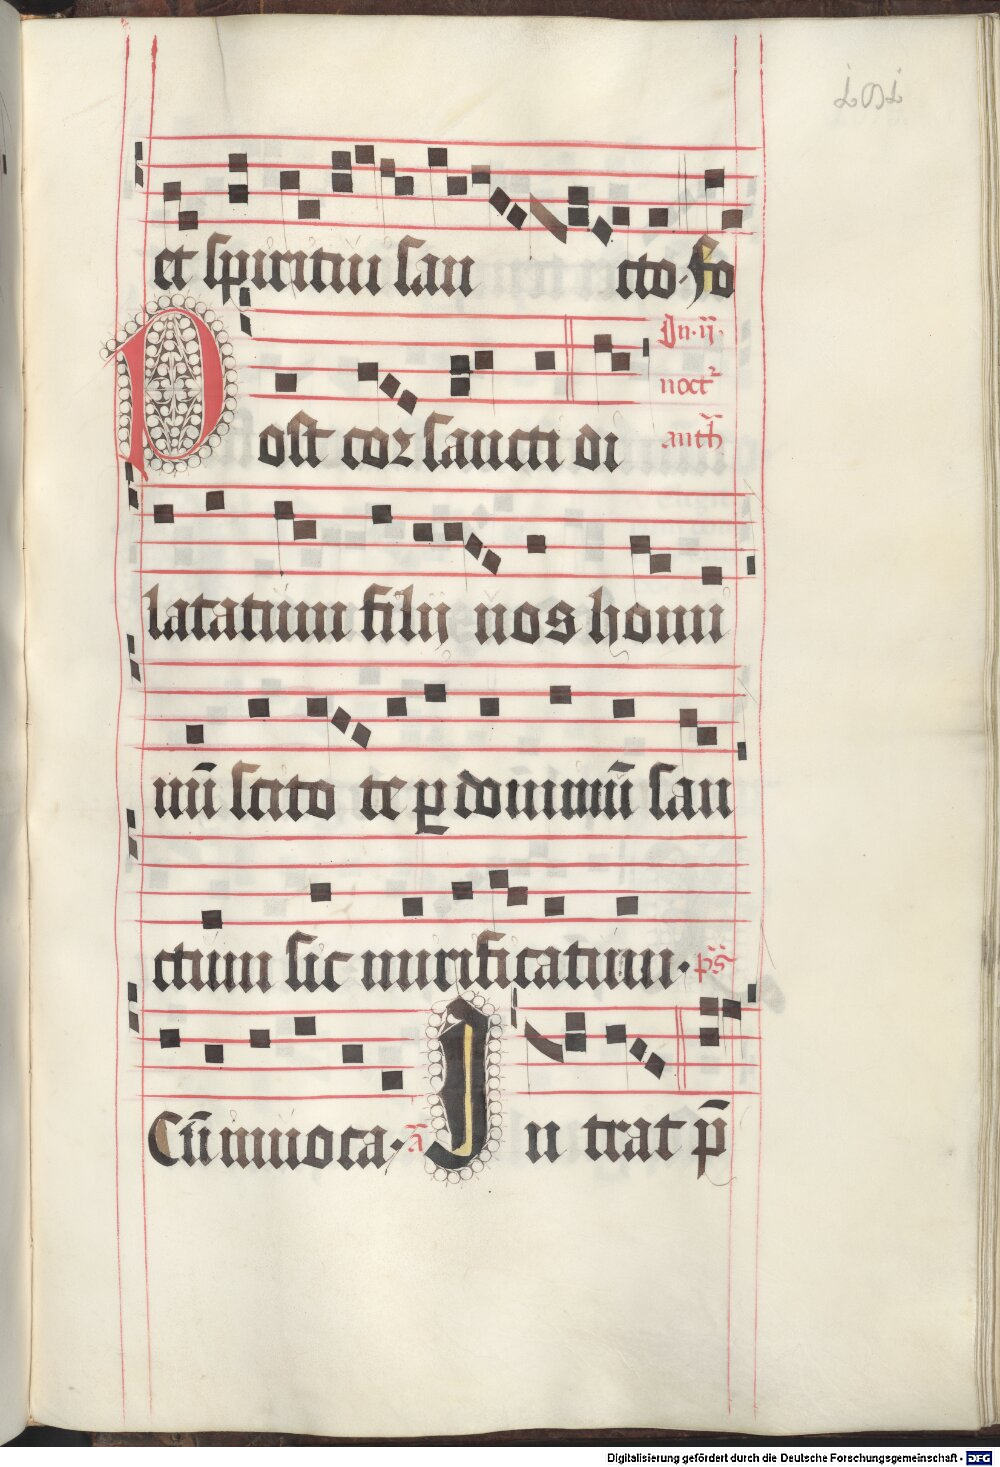 et spiritui san cto. fo
Post cor sancti di
In. ij.
noct
anth
latatum filij nos homi
nū scito te ꝑ dominum̄ san
ctum sic mirificatum. ps
Cū inuoca. a In trat p̄
Digitalisierung gefördert durch die Deutsche Forschungsgemeinschaft - DFG